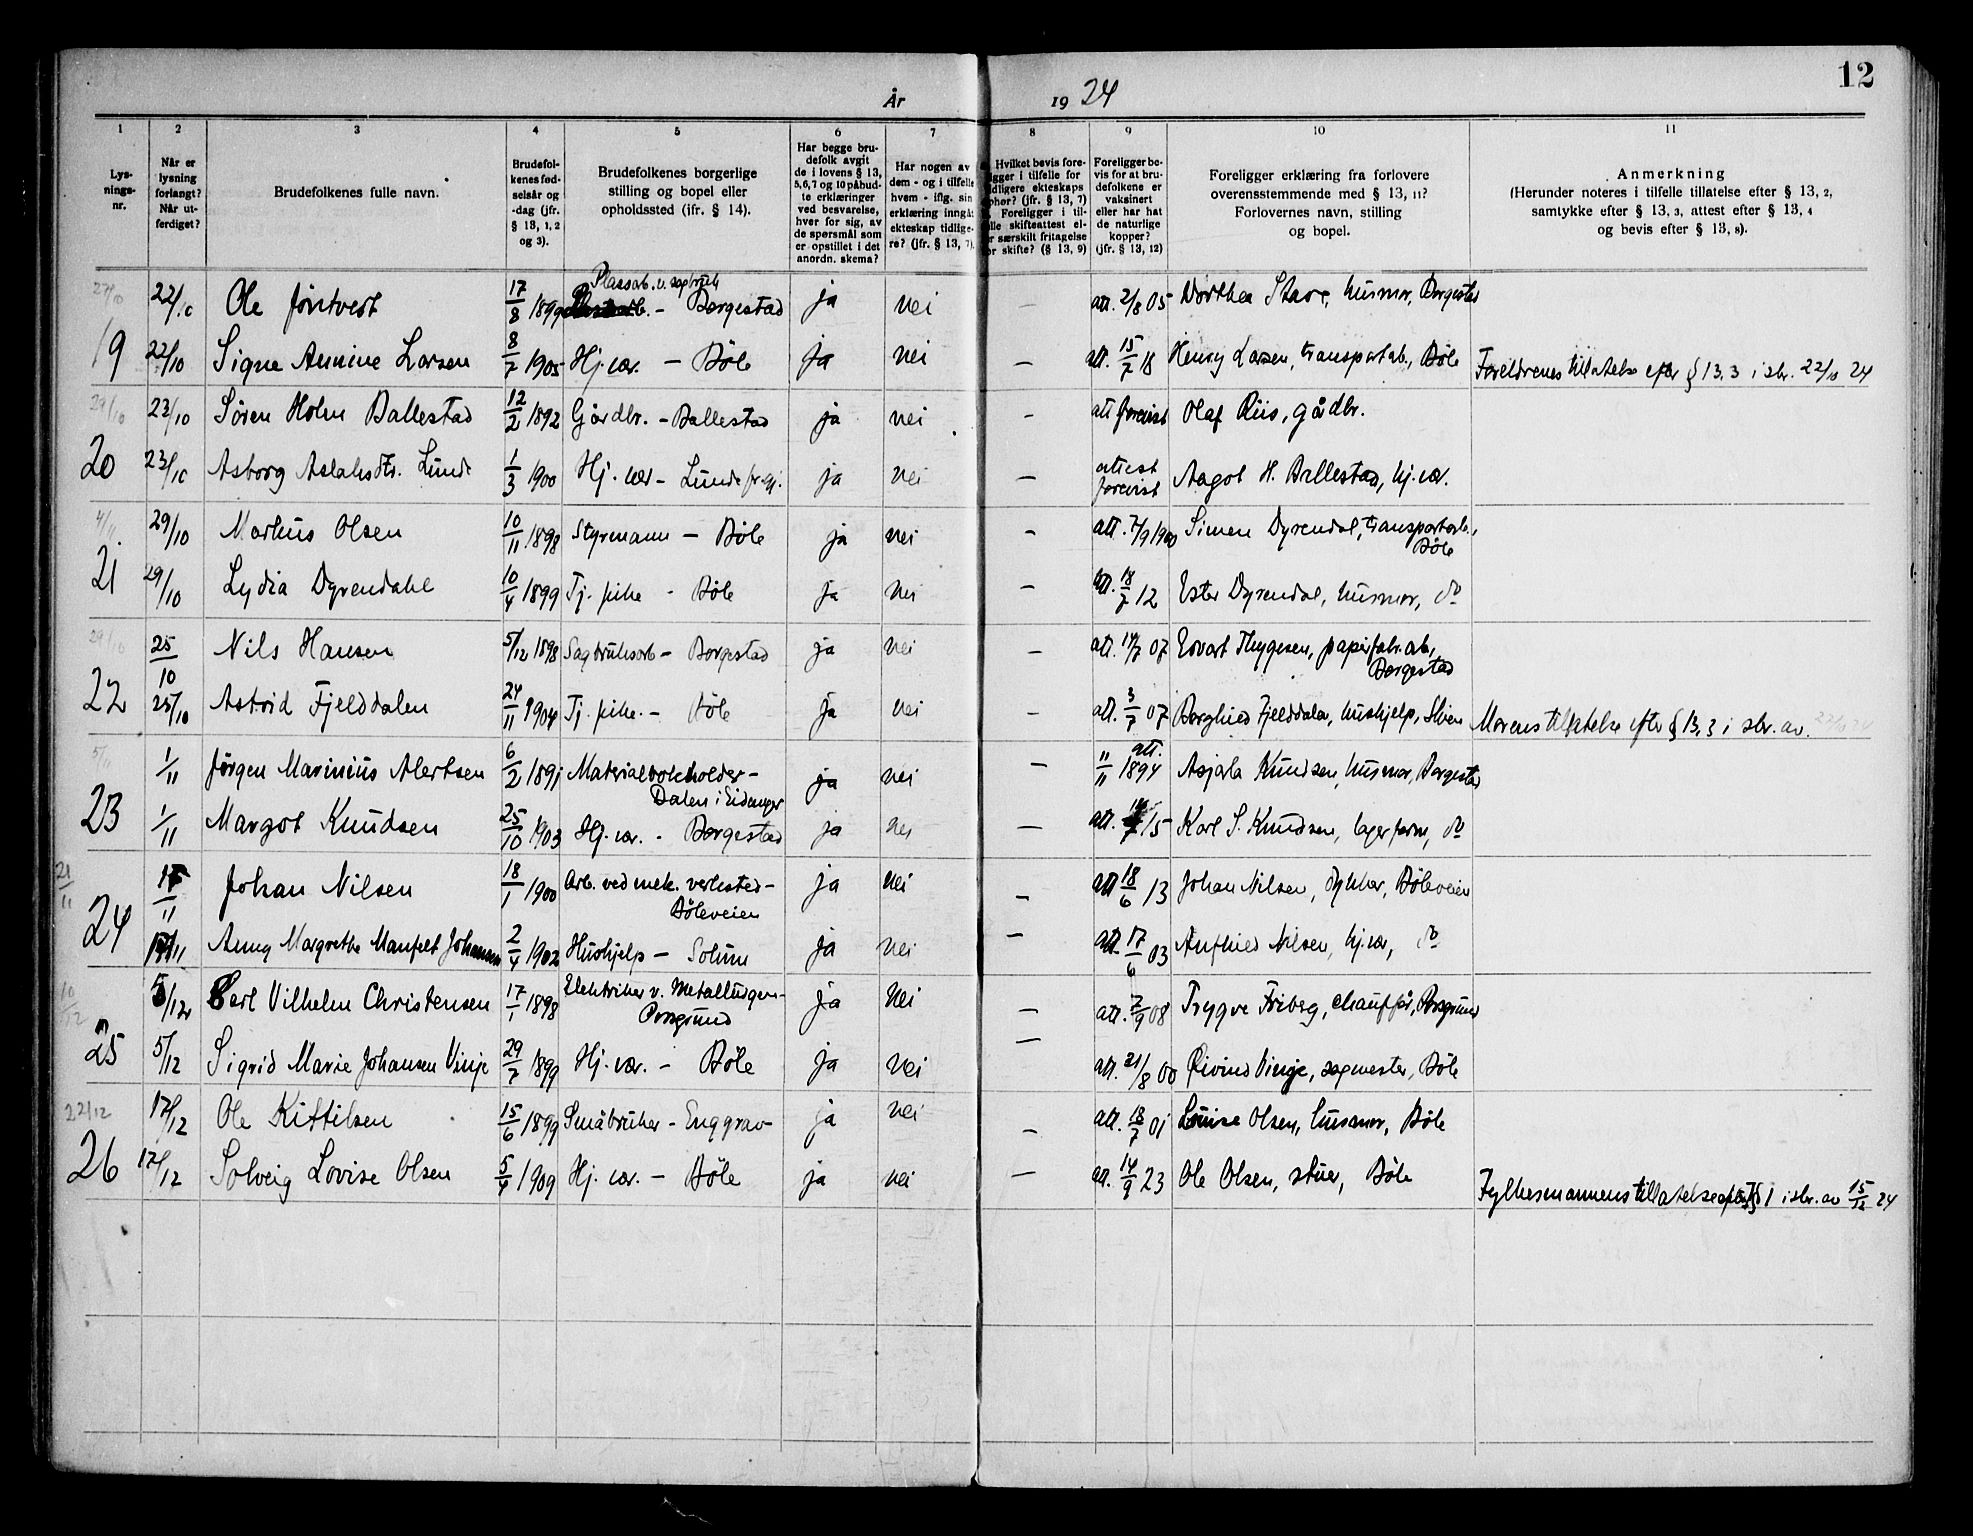 12
År 1924
1 2 3 4 5 6 7 8 9 10 11
Lys-
nings-
nr.
Når er
lysning
forlangt?
Når ut-
ferdiget?
Brudefolkenes fulle navn.
Brudefol-
kenes fød-
selsår og
-dag (jfr.
§ 13, 1, 2
og 3).
Brudefolkenes borgerlige
stilling og bopel eller
opholdssted (ifr. § 14).
Har begge bru-
defolk avgit
de i lovens § 13,
5, 6, 7 og 10 påbud-
te erklæringer
ved besvarelse,
hver for sig, av
de spørsmål som
er opstillet i det
anordn. skema?
Har nogen av
dem - og i tilfelle
hvem - iflg. sin
erklæring inngåt
ekteskap tidlige-
re? (jfr. § 13, 7).
Hvilket bevis fore-
ligger i tilfelle for
tidligere ekteskaps
ophør? (jfr. § 13, 7)
Foreligger i til-
felle skifteattest el-
er særskilt fritagelse
for skifte? (§ 13, 9)
Foreligger be-
vis for at bru-
defolkene er
vaksinert
eller har hat
de naturlige
kopper?
(jfr. § 13, 12)
Foreligger erklæring fra forlovere
overensstemmende med § 13, 11?
Forlovernes navn, stilling
og bopel.
Anmerkning
(Herunder noteres i tilfelle tillatelse efter § 13, 2,
samtykke efter § 13, 3, attest efter § 13, 4
og bevis efter § 13, 8).
27/10 22/10 Ole Jøntvedt 17/8 1899 Plassarb. v. sagbruk - Borgestad ja nei — att. 2/8 05 Dorthea Stave, husmor, Borgestad
19 22/10 Signe Annine Larsen 8/7 1905 Hj. vær. - Bøle ja nei — att. 15/7 18 Henry Larsen, transportarb., Bøle Foreldrenes tillatelse efter § 13, 3 i skr. 22/10 24
29/10 23/10 Søren Holm Ballestad 12/2 1892 Gårdbr. - Ballestad ja nei — att forevist Olaf Riis, gårdbr.
20 23/10 Asborg Aslaksdtr. Lunde 1/3 1900 Hj. vær - Lunde pr.gj. ja nei — attest forevist Aagot H. Ballestad, hj. vær.
4/11 29/10 Markus Olsen 10/11 1898 Styrmann - Bøle ja nei — att. 7/9 1900 Simen Dyrendal, transportarb., Bøle
21 29/10 Lydia Dyrendahl 10/4 1899 Tj. pike - Bøle ja nei — att. 18/7 12 Ester Dyrendal, husmor, do
29/10 25/10 Nils Hansen 5/12 1898 Sagbruksarb - Borgestad ja nei — att. 14/7 07 Edvart Thygesen, papirfabr.arb, Borgestad
22 25/10 Astrid Fjelddalen 24/11 1904 Tj. pike. - Bøle ja nei — att. 3/7 07 Borghild Fjelddalen, hushjelp, Skien Morens tillatelse efter § 13, 3 i skr. av. 22/10 24
5/11 1/11 Jørgen Marinius Alertsen 6/2 1891 Materialbokholder - Dalen i Eidanger ja nei — att. 11/11 1894 Asjala Knudsen, husmor, Borgestad
23 1/11 Margot Knudsen 25/10 1903 Hj. vær. - Borgestad ja nei — att. 15 Karl S. Knudsen, lagerform, do
21/11 17/11 Johan Nilsen 18/1 1900 Arb. ved mek. verksted - Bøleveien ja nei — att 18/6 13 Johan Nilsen, dykker, Bøleveien
24 17/11 Anny Margrethe Manfelt Johansen 2/4 1902 Hushjelp - Solum ja nei — att. 17/6 03 Anfhild Nilsen, hj. vær, do
10/12 5/12 Carl Vilhelm Christensen 17/1 1898 Elektriker v. Metallurgen - Porsgrund ja nei — att. 7/9 08 Trygve Friberg, chauffør, Porsgrund
25 5/12 Sigrid Marie Johansen Vinje 29/7 1899 Hj. vær. - Bøle ja nei — att. 21/8 00 Øivind Vinje, sagmester, Bøle
22/12 17/12 Ole Kittilsen 15/6 1899 Småbruker - Enggrav ja nei — att. 18/7 01 Louise Olsen, husmor, Bøle
26 17/12 Solveig Lovise Olsen 5/4 1909 Hj. vær. - Bøle ja nei — att. 14/9 23 Ole Olsen, stuer, Bøle Fylkesmannens tillatelse efter § 1 i skr. av 15/12 24